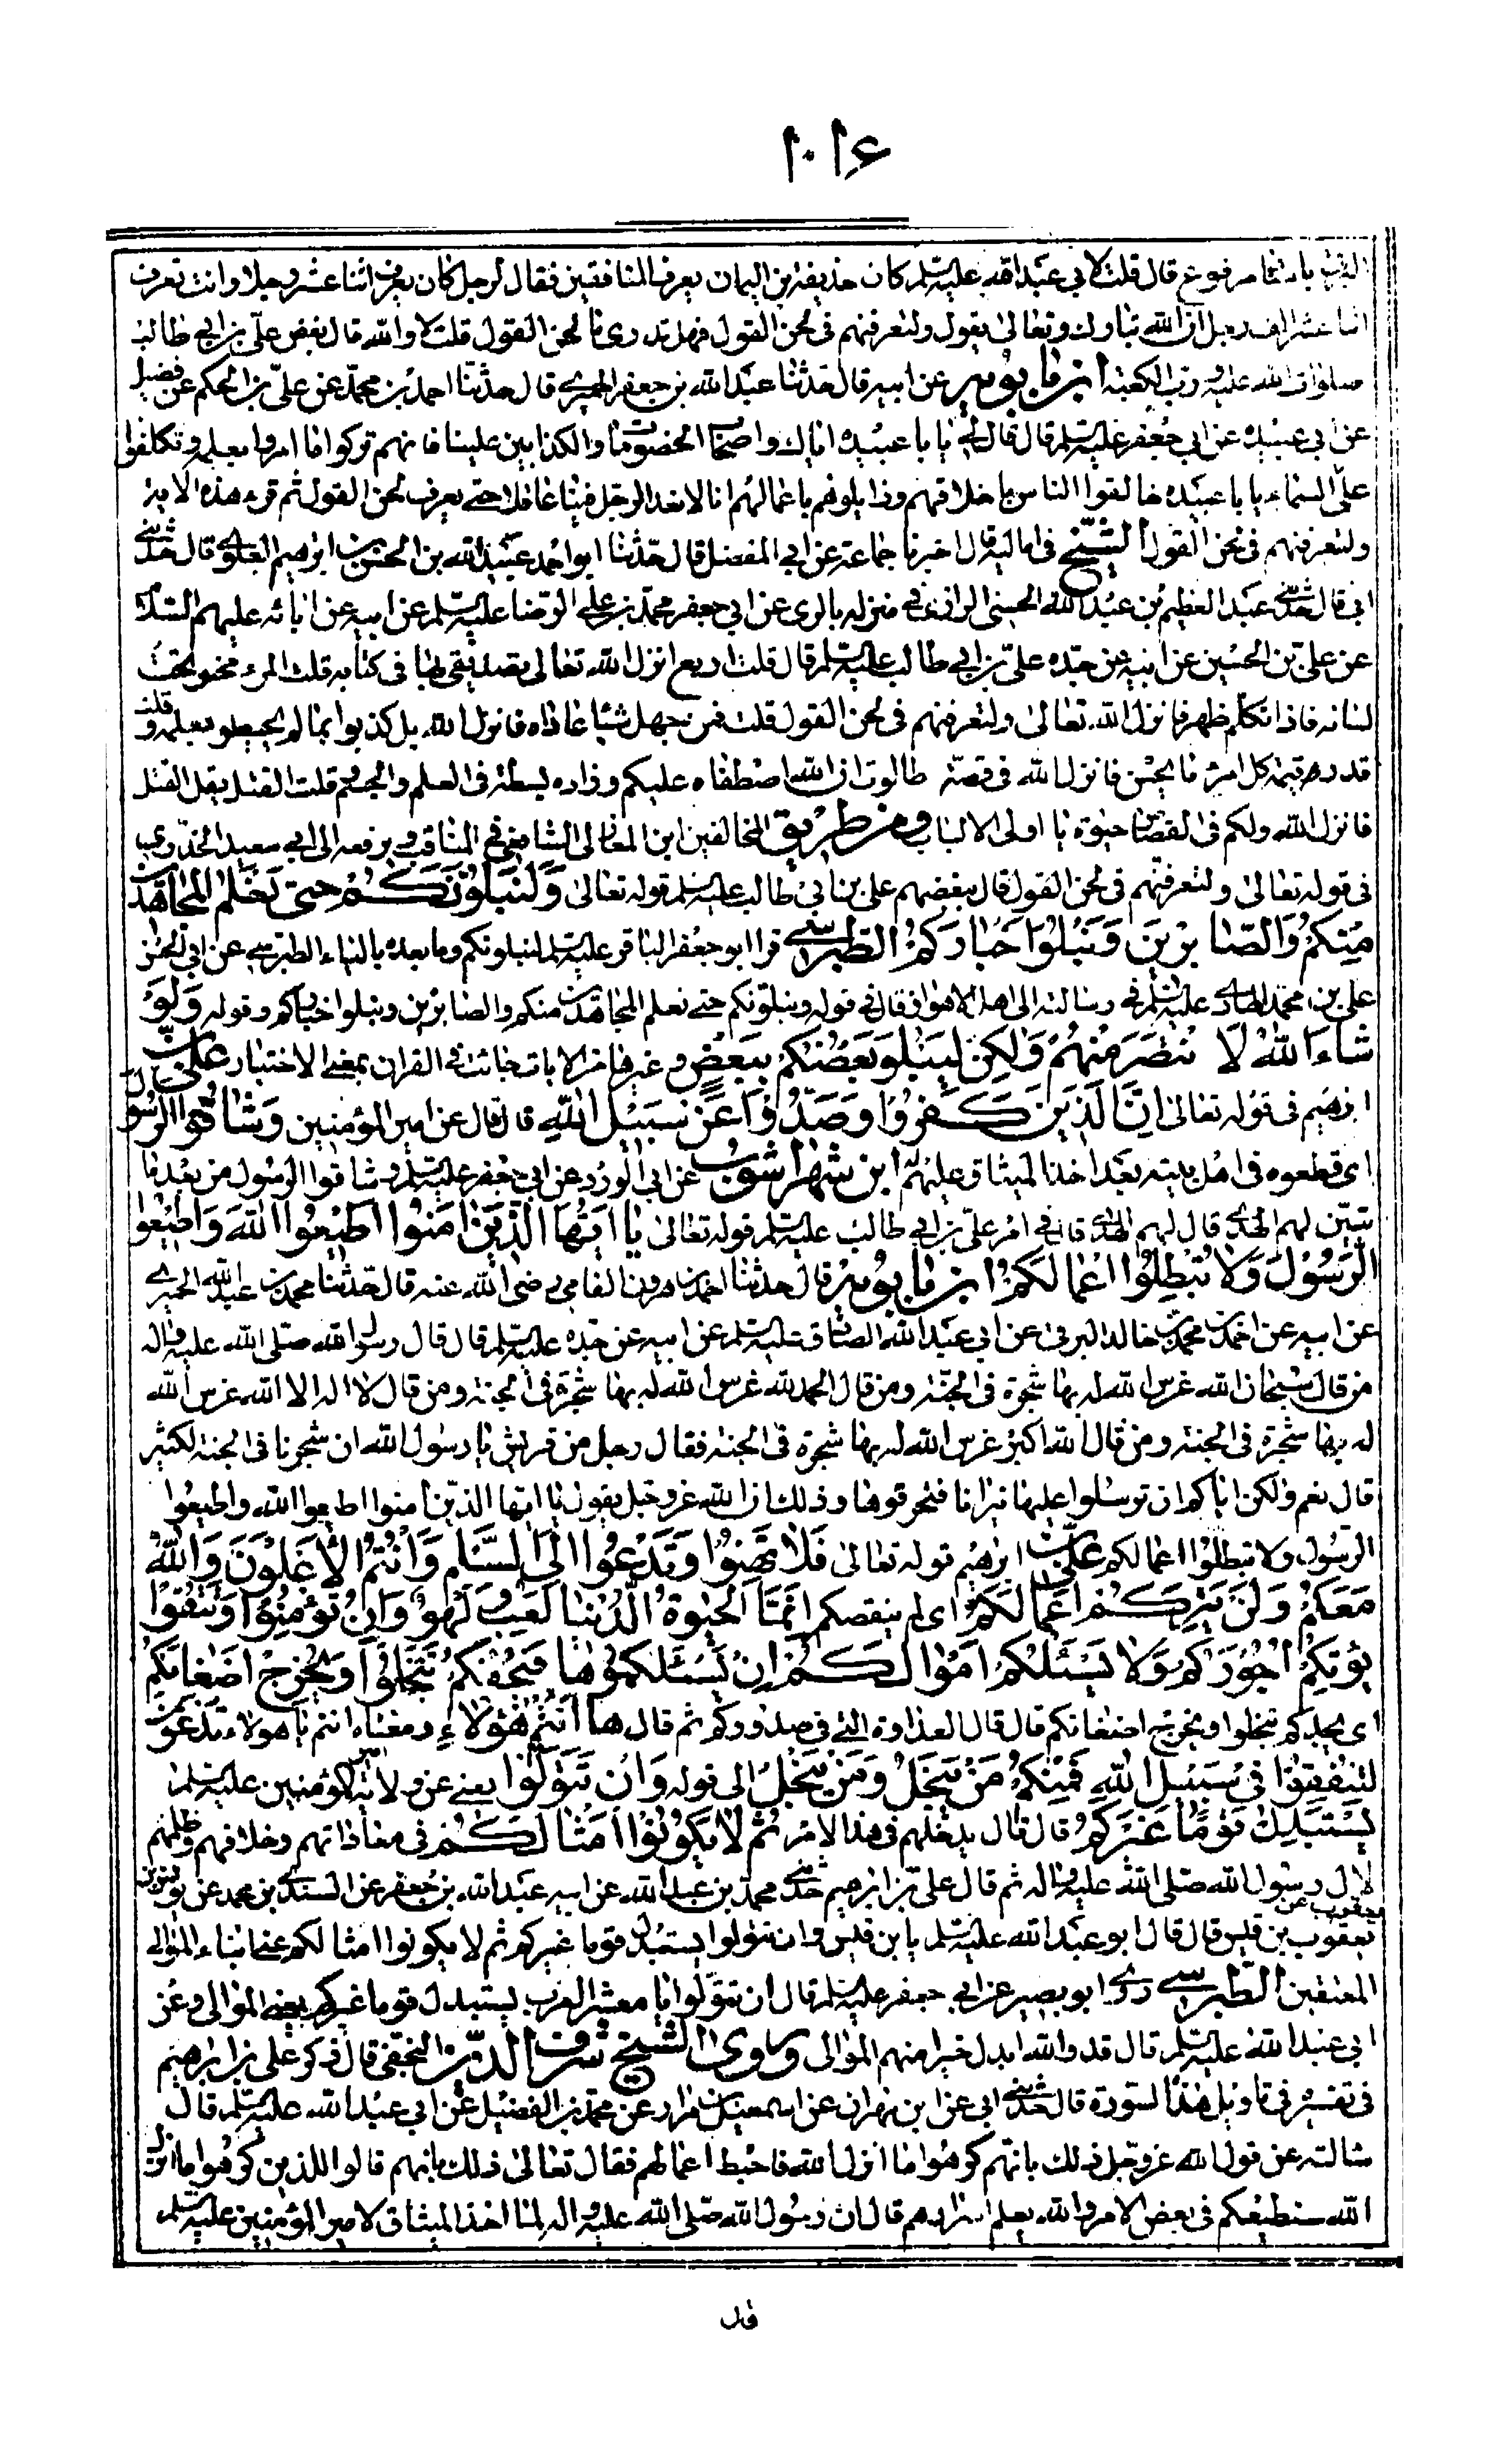 ۱۰۱۶
باسناده مرفوع قال قلت لابي عبد الله عليه السلم كان حذيفة بن اليمان يعرف المنافقين فقال رجل كان يعرف اثنا عشر رجلا وانت تعرف
اثنا عشر الف رجل ان الله تبارك وتعالى يقول ولتعرفنهم فى لحن القول فهل تدرى ما لحن القول قلت لا والله قال بغض على بن ابي طالب
صلوات الله عليه ورب الكعبة ابن بابويه عن ابيه قال حدثنا عبد الله بن جعفر الحميرى قال حدثنا احمد بن محمد عن على بن الحكم عن فضيل
عن ابي عبيدة عن ابي جعفر عليه السلم قال قال لى يا با عبيدة اياك واصحاب الخصومات والكذابين علينا فانهم تركوا ما امروا بعلمه وتكلفوا
علم السماء يا با عبيدة خالقوا الناس باخلاقهم وزايلوهم باعمالهم انا لا نعد الرجل فينا عاقلا حتى يعرف لحن القول ثم قرء هذه الاية
ولتعرفنهم فى لحن القول الشيخ فى اماليه قال اخبرنا جماعة عن ابي المفضل قال حدثنا ابو احمد عبيد الله بن الحسين بن ابرهيم العلوى قال حدثنى
ابي قال حدثنى عبد العظيم بن عبد الله الحسينى الرازى فى منزله بالرى عن ابي جعفر محمد بن على الرضا عليه السلم عن ابيه عن ابائه عليهم السلام
عن على بن الحسين عن ابيه عن جده على بن ابي طالب عليه السلم قال قلت اربع انزل الله تعالى بتصديقى بها فى كتابه قلت المرء مخبو تحت
لسانه فاذا تكلم ظهر فانزل الله تعالى ولتعرفنهم فى لحن القول قلت فمن جهل شيئا عاداه فانزل الله بل كذبوا بما لم يحيطوا بعلمه وقلت
قدر وقيمة كل امرء ما يحسن فانزل الله فى قصة طالوت ان الله اصطفاه عليكم وزاده بسطة فى العلم والجسم قلت القتل يقل القتل
فانزل الله ولكم فى القصاص حيوة يا اولى الالباب ومن طريق المخالفين ابن المغازلى الشافعى فى المناقب يرفعه الى ابي سعيد الخدرى
فى قوله تعالى ولتعرفنهم فى لحن القول قال ببغضهم على بن ابي طالب عليه السلم قوله تعالى وَلَنَبْلُوَنَّكُمْ حتى نَعْلَمَ المجاهدين
مِنْكُمْ وَالصَّابِرِينَ وَنَبْلُوَا اَخْبارَكُمْ الطبرسى قرا ابو جعفر الباقر عليه السلم ليبلونكم وما بعده بالياء الطبرسى عن ابي الحسن
على بن محمد الهادى عليه السلم فى رسالته الى اهل الاهواز قال فى قوله ولنبلونكم حتى نعلم المجاهدين منكم والصابرين ونبلوا اخباركم وقوله وَلَوْ
شاءَ اللهُ لَا نْتَصَرَ مِنْهُمْ وَلكِنْ لِيَبْلُوَ بَعْضَكُمْ بِبَعْضٍ وغيرها من الايات جائت فى القران بمعنى الاختبار على بن
ابرهيم فى قوله تعالى اِنَّ الَّذِينَ كَفَرُوا وَصَدُّوا عَنْ سَبِيلِ اللهِ قال قال عن امير المؤمنين وَشَاقُّوا الرسول
اى قطعوه فى اهل بيته بعد اخذ الميثاق عليهم ابن شهراشوب عن ابي الورد عن ابي جعفر عليه السلم وشاقوا الرسول من بعد ما
تبين لهم الهدى قال لهم الهدى قال فى امر على بن ابي طالب عليه السلم قوله تعالى يا اَيُّهَا الَّذِينَ امَنُوا اَطِيعُوا اللهَ وَاَطِيعُوا
الرَّسُولَ وَلا تُبْطِلُوا اَعْمالَكُمْ ابن بابويه قال حدثنا احمد بن هرون الفامى رضى الله عنه قال حدثنا محمد بن عبد الله الحميرى
عن ابيه عن احمد بن محمد بن خالد البرقى عن ابي عبد الله الصادق عليه السلم عن ابيه عن جده عليه السلم قال قال رسول الله صلى الله عليه واله
من قال سبحان الله غرس الله له بها شجرة فى الجنة ومن قال الحمد لله غرس الله له بها شجرة فى الجنة ومن قال لا اله الا الله غرس الله
له بها شجرة فى الجنة ومن قال الله اكبر غرس الله له بها شجرة فى الجنة فقال رجل من قريش يا رسول الله ان شجرنا فى الجنة لكثير
قال نعم ولكن اياكم ان ترسلوا عليها نيرانا فتحرقوها وذلك ان الله عز وجل يقول يا ايها الذين امنوا اطيعوا الله واطيعوا
الرسول ولا تبطلوا اعمالكم على بن ابرهيم قوله تعالى فَلا تَهِنُوا وَتَدْعُوا اِلَى السَّلْمِ وَاَنْتُمُ الْاَعْلَوْنَ وَاللهُ
مَعَكُمْ وَلَنْ يَتِرَكُمْ اَعْمالَكُمْ اى لم ينقصكم اِنَّمَا الحَيوةُ الدُّنْيا لَعِبٌ وَ لَهْوٌ وَاِنْ تُؤْمِنُوا وَتَتَّقُوا
يُؤْتِكُمْ اُجُورَكُمْ وَلا يَسْئَلْكُمْ اَمْوالَكُمْ اِنْ يَسْئَلْكُمُوها فَيُحْفِكُمْ تَبْخَلُوا وَيُخْرِجْ اَضْغانَكُمْ
اى يجدكم تبخلوا ويخرج اضغانكم قال قال العداوة التى فى صدوركم ثم قال ها اَنْتُمْ هؤُلاءِ ومعناه انتم يا هولاء تدعون
لِتُنْفِقُوا فِي سَبِيلِ اللهِ فَمِنْكُمْ مَنْ يَبْخَلُ وَمَنْ يَبْخَلْ الى قوله وَاِنْ تَتَوَلَّوْا يعنى عن ولاية امير المؤمنين عليه السلم
يَسْتَبْدِلْ قَوْمًا غَيْرَكُمْ قال قال يدخلهم فى هذا الامر ثُمَّ لا يَكُونُوا اَمْثالَكُمْ فى معاداتهم وخلافهم وظلمهم
لال رسول الله صلى الله عليه واله ثم قال على بن ابرهيم حدثنى محمد بن عبد الله عن ابيه عبد الله بن جعفر عن السندى بن محمد عن يونس بن
يعقوب عن
يعقوب بن قيس قال قال ابو عبد الله عليه السلم يا بن قيس وان تتولوا يستبدل قوما غيركم ثم لا يكونوا امثالكم عنى ابناء الموالى
المعتقين الطبرسى روى ابو بصير عن ابي جعفر عليه السلم قال ان تتولوا يا معشر العرب يستبدل قوما غيركم يعنى الموالى وعن
ابي عبد الله عليه السلم قال قد والله ابدل خيرا منهم الموالى وروى الشيخ شرف الدين النجفى قال ذكر على بن ابرهيم
فى تفسيره فى تاويل هذه السورة قال حدثنى ابي عن ابن مهران عن اسمعيل بن مرار عن محمد بن الفضيل عن ابي عبد الله عليه السلم قال
سالته عن قول الله عز وجل ذلك بانهم كرهوا ما انزل الله فاحبط اعمالهم فقال تعالى ذلك بانهم قالوا للذين كرهوا ما انزل
الله سنطيعكم فى بعض الامر والله يعلم اسرارهم قال ان رسول الله صلى الله عليه واله لما اخذ الميثاق لامير المؤمنين عليه السلم
قال